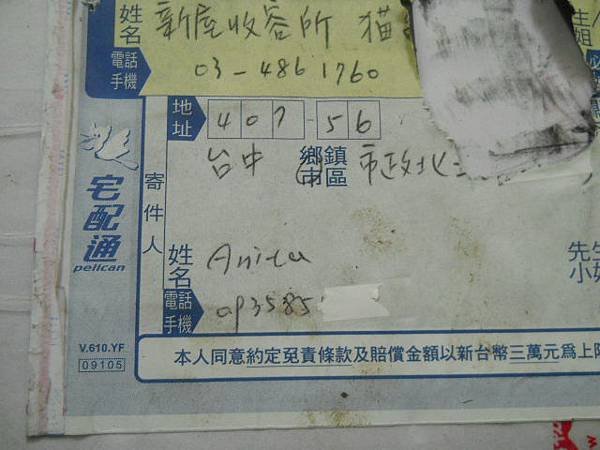 姓名 新屋收容所 貓
生
姐
電話
手機 03-4861760
地址 407-56
台中 鄉鎮市區 市政北
寄件人
宅配通
pelican
姓名 Anita
先生
小姐
電話
手機 093585
V.610.YF
09105
本人同意約定免責條款及賠償金額以新台幣三萬元為上限